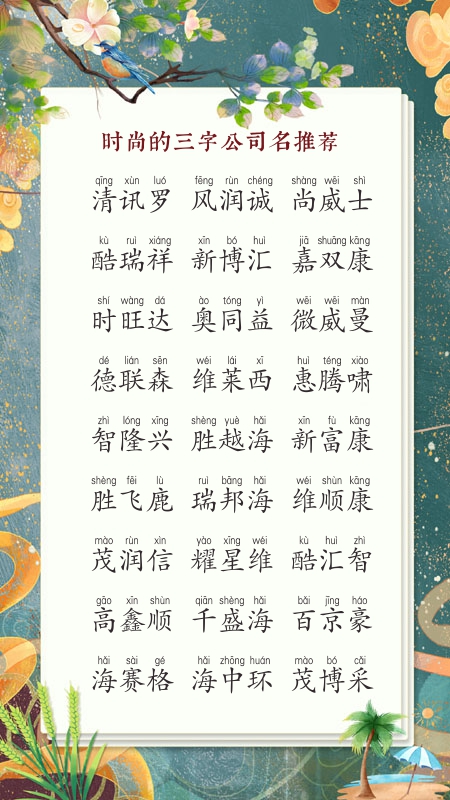 时尚的三字公司名推荐
qīng xùn luó fēng rùn chéng shàng wēi shì
清讯罗 风润诚 尚威士
kù ruì xiáng xīn bó huì jiā shuāng kāng
酷瑞祥 新博汇 嘉双康
shí wàng dá ào tóng yì wēi wēi màn
时旺达 奥同益 微威曼
dé lián sēn wéi lái xī huì téng xiào
德联森 维莱西 惠腾啸
zhì lóng xīng shèng yuè hǎi xīn fù kāng
智隆兴 胜越海 新富康
shèng fēi lù ruì bāng hǎi wéi shùn kāng
胜飞鹿 瑞邦海 维顺康
mào rùn xìn yào xīng wéi kù huì zhì
茂润信 耀星维 酷汇智
gāo xīn shùn qiān shèng hǎi bǎi jīng háo
高鑫顺 千盛海 百京豪
hǎi sài gé hǎi zhōng huán mào bó cǎi
海赛格 海中环 茂博采